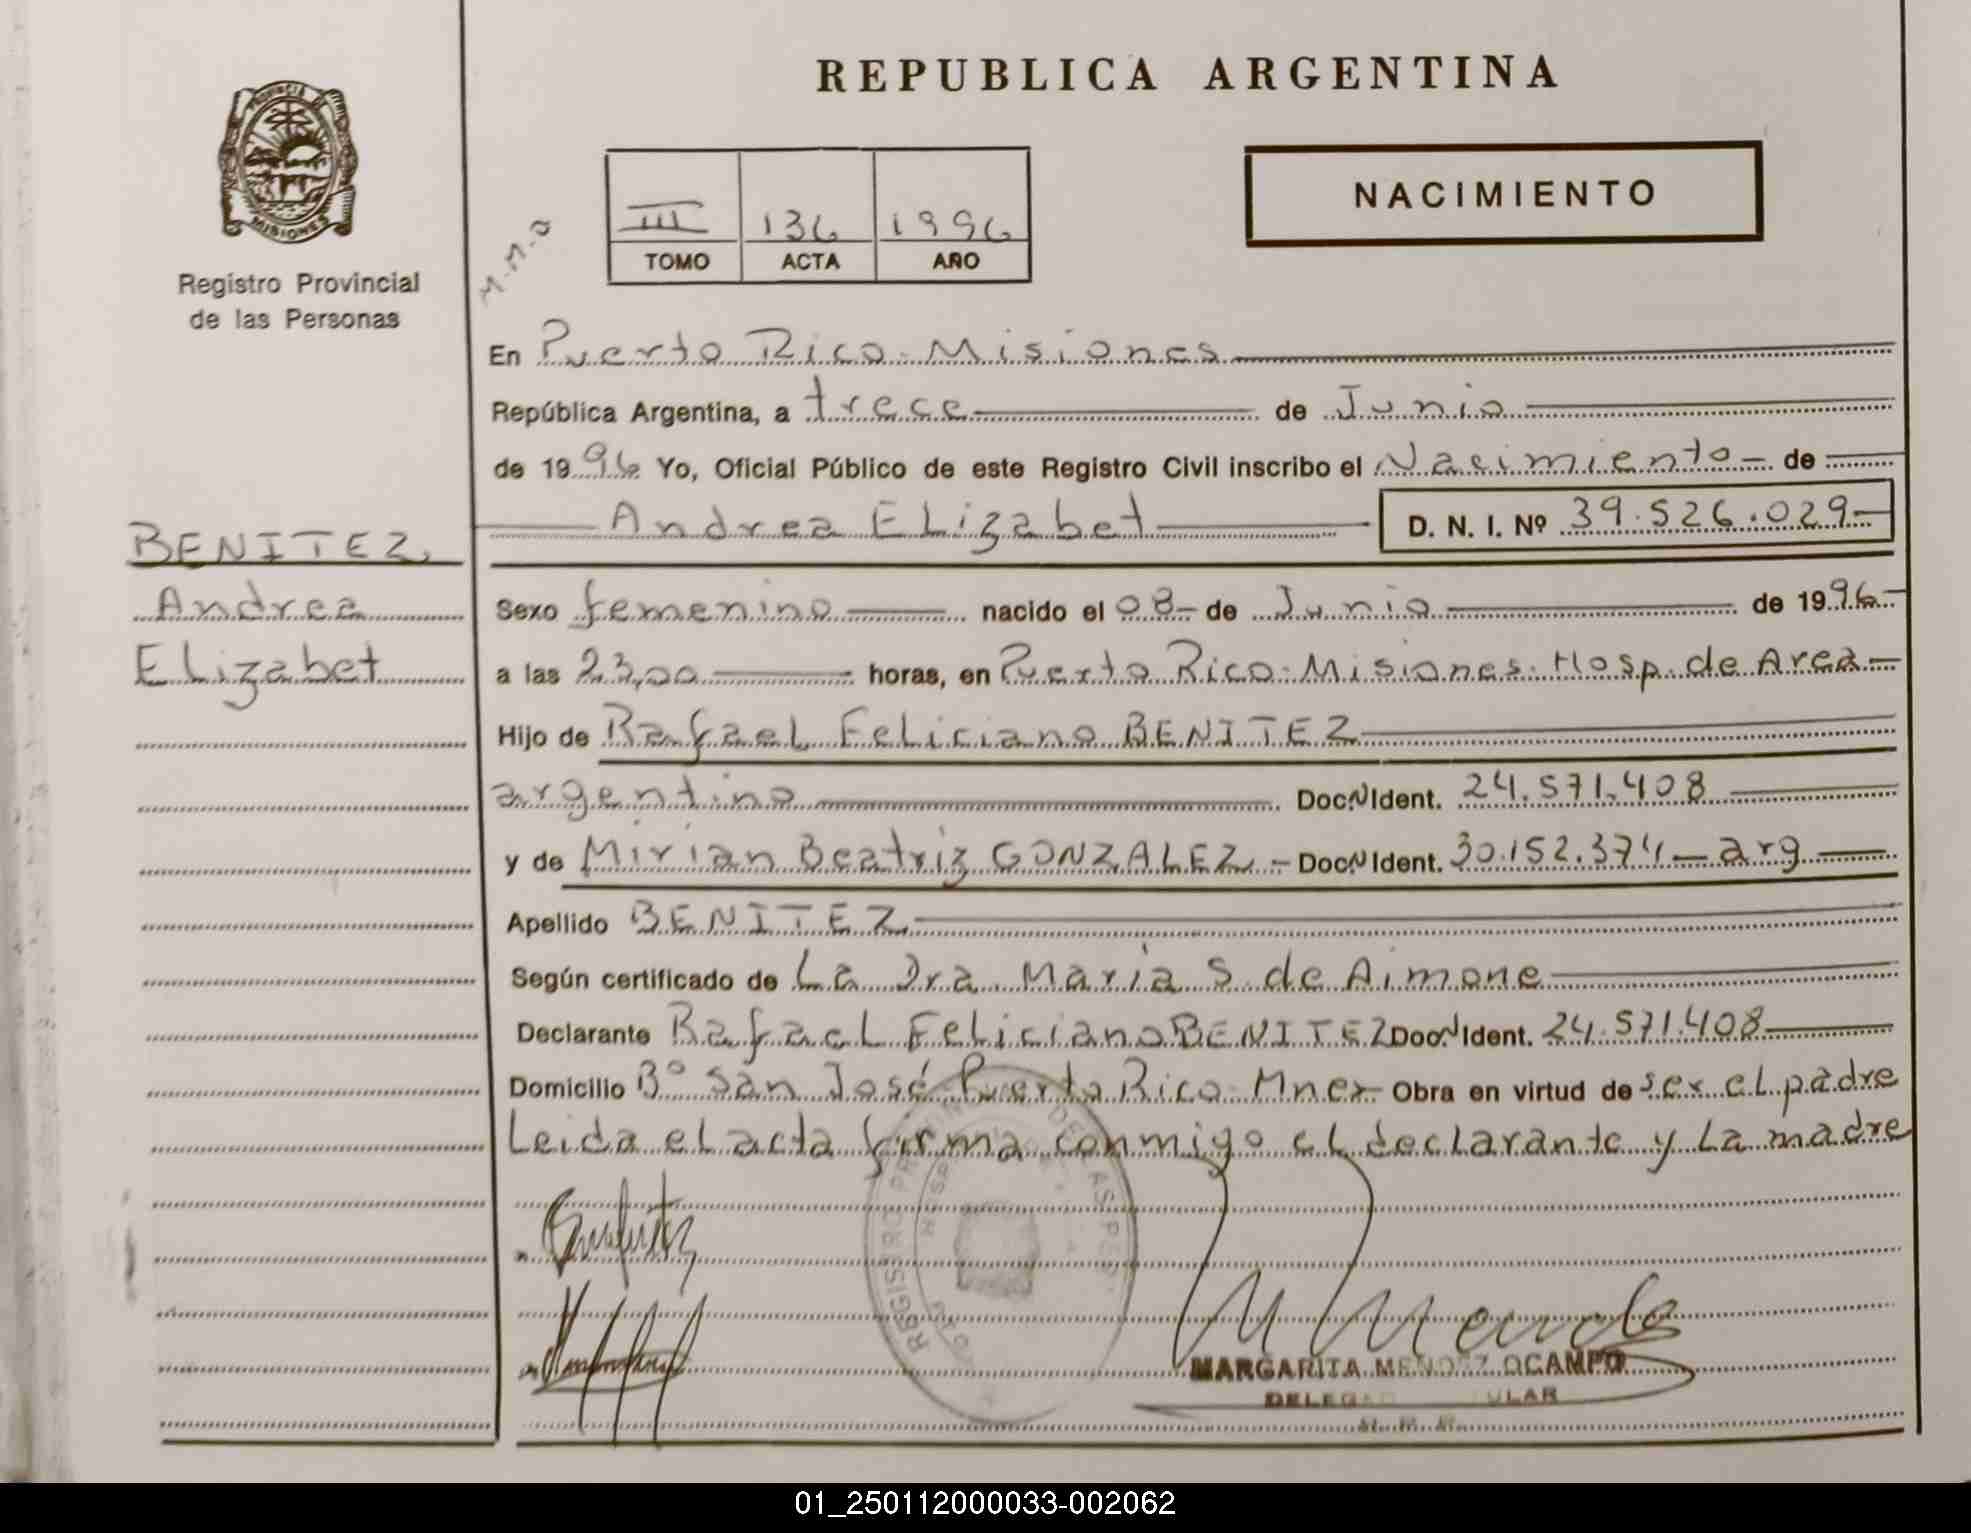 REPUBLICA ARGENTINA
PROVINCIA DE
MISIONES
Registro Provincial
de las Personas
III 136 1996
TOMO ACTA AÑO
NACIMIENTO
M.M.O
En Puerto Rico - Misiones
República Argentina, a trece de Junio
de 1996 Yo, Oficial Público de este Registro Civil inscribo el Nacimiento - de
Andrea ELizabet D. N. I. Nº 39.526.029-
BENITEZ
Andrea
ELizabet
Sexo femenino nacido el 08- de Junio de 1996-
a las 23,00 horas, en Puerto Rico - Misiones. Hosp. de Area -
Hijo de Rafael Feliciano BENITEZ
argentino Doc. N Ident. 24.571.408
y de Mirian Beatriz GONZALEZ - Doc. N Ident. 30.152.374 - arg
Apellido BENITEZ
Según certificado de La Dra. Maria S. de Aimone
Declarante Rafael Feliciano BENITEZ Doc. N Ident. 24.571.408
Domicilio Bº San José Puerto Rico - Mnes - Obra en virtud de ser el padre
Leida el acta firma conmigo el declarante y La madre
REGISTRO
MARGARITA MENDEZ OCAMPO
01_250112000033-002062